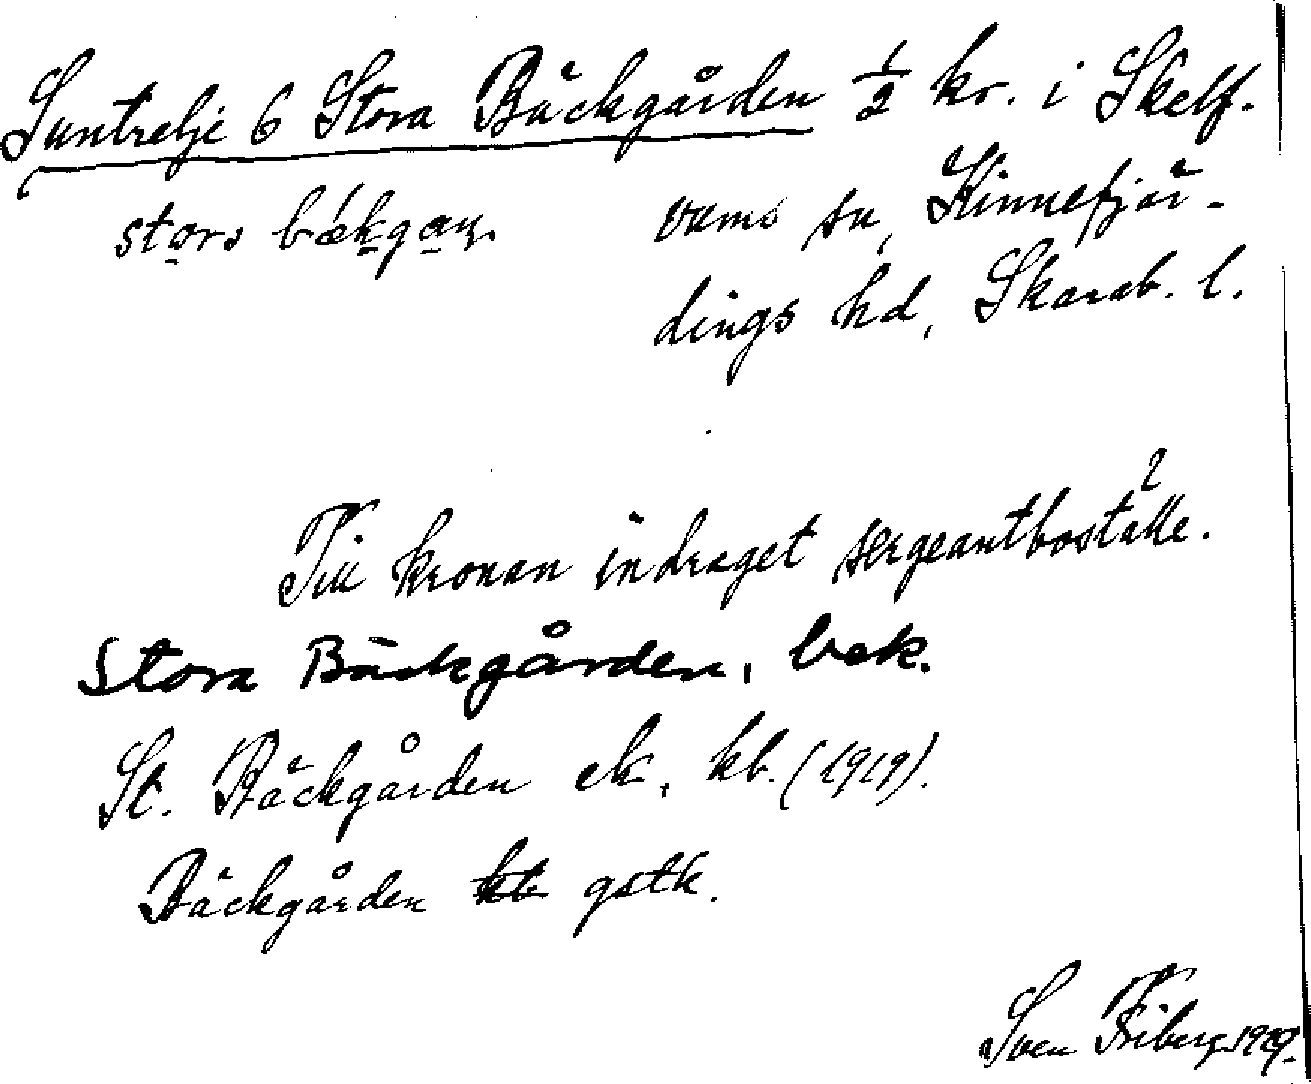 Suntrelje 6 Stora Bäckgården ½ kr. i Skelf-
vums sn, Kinnefjär-
dings hd, Skarab. l.
Till kronan indraget sergeantboställe.
Stora Bäckgården, bek.
St. Bäckgården ek, kb. (1919).
Bäckgården kb gstk.
Sven Friberg 1929.